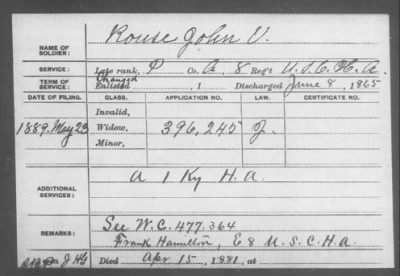 NAME OF SOLDIER: Rouse John V.
SERVICE: Late rank, P Co. A, 8 Reg't U.S.C.H.A.
TERM OF SERVICE: Changed
Enlisted , 1 Discharged June 8, 1865
DATE OF FILING. CLASS. APPLICATION NO. LAW. CERTIFICATE NO.
Invalid,
1889. May 23 Widow, 396,245
Minor,
ADDITIONAL SERVICES: A 1 Ky H.A.
REMARKS: See W.C. 477.364
Frank Hamilton, E 8 U.S.C.H.A.
Died Apr. 15, 1881, at